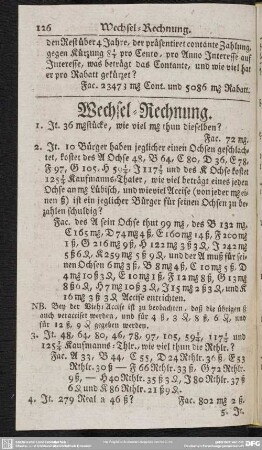 126 Wechsel-Rechnung.
den Rest über 4 Jahre, der präsentiret contante Zahlung,
gegen Kürzung 8¼ pro Cento, pro Anno Interesse auf
Interesse, was beträgt das Contante, und wie viel hat
er pro Rabatt gekürzet?
Fac. 23473 mg Cont. und 5086 mg Rabatt.
Wechsel-Rechnung.
1. It. 36 mgstücke, wie viel mg thun dieselben?
Fac. 72 mg.
2. It. 10 Bürger haben jeglicher einen Ochsen geschlach-
tet, kostet des A Ochse 48, B 64, C 80, D 36, E 78,
F 97, G 105, H 59½, I 117½ und des K Ochse kostet
125¾ Kaufmanns-Thaler, wie viel beträgt eines jeden
Ochse an mg Lübisch, und wieviel Accise (von jeder mg einen
ß) ist ein jeglicher Bürger für seinen Ochsen zu be-
zahlen schuldig?
Fac. des A sein Ochse thut 99 mg, des B 132 mg,
C 165 mg, D 74 mg 4 ß, E 160 mg 14 ß, F 200 mg
1 ß, G 216 mg 9 ß, H 122 mg 2 ß 3 Z, I 242 mg
5 ß 6 Z, K 259 mg 5 ß 9 Z, und der A muß für sei-
nen Ochsen 6 mg 3 ß, B 8 mg 4 ß, C 10 mg 5 ß, D
4 mg 10 ß 3 Z, E 10 mg 1 ß, F 12 mg 8 ß, G 13 mg
8 ß 6 Z, H 7 mg 10 ß 3 Z, I 15 mg 2 ß 3 Z, und K
16 mg 3 ß 3 Z Accise entrichten.
NB. Bey der Vieh-Accise ist zu beobachten, daß die übrigen ß
auch veracciset werden, und für 4 ß, 3 Z, 8 ß 6 Z, und
für 12 ß, 9 Z gegeben werden.
3. It. 48, 64, 80, 46, 78, 97, 105, 59½, 117½ und
125¾ Kaufmanns-Thlr., wie viel thun die Rthlr.?
Fac. A 33, B 44, C 55, D 24 Rthlr. 36 ß, E 53
Rthlr. 30 ß — F 66 Rthlr. 33 ß, G 72 Rthlr.
9 ß, — H 40 Rthlr. 35 ß 3 Z, I 80 Rthlr. 37 ß
6 Z und K 86 Rthlr. 21 ß 9 Z.
4. It. 279 Real a 46 ß? Fac. 802 mg 2 ß.
5. It.